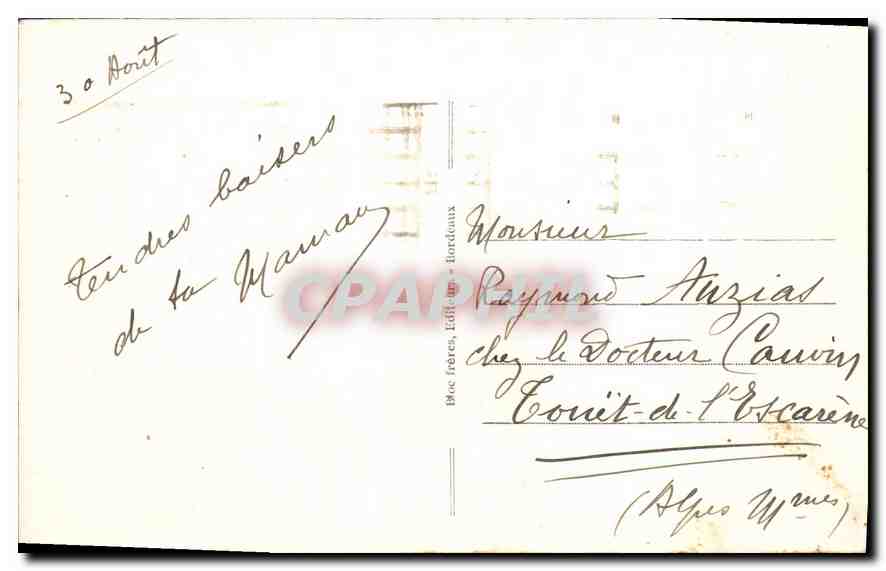 30 Août
Tendres baisers
de ta Maman
Bloc frères, Editeurs - Bordeaux
CPAPHIL
Monsieur
Raymond Auzias
chez le Docteur Cauvin
Touët-de-l'Escarène
(Alpes Mmes)